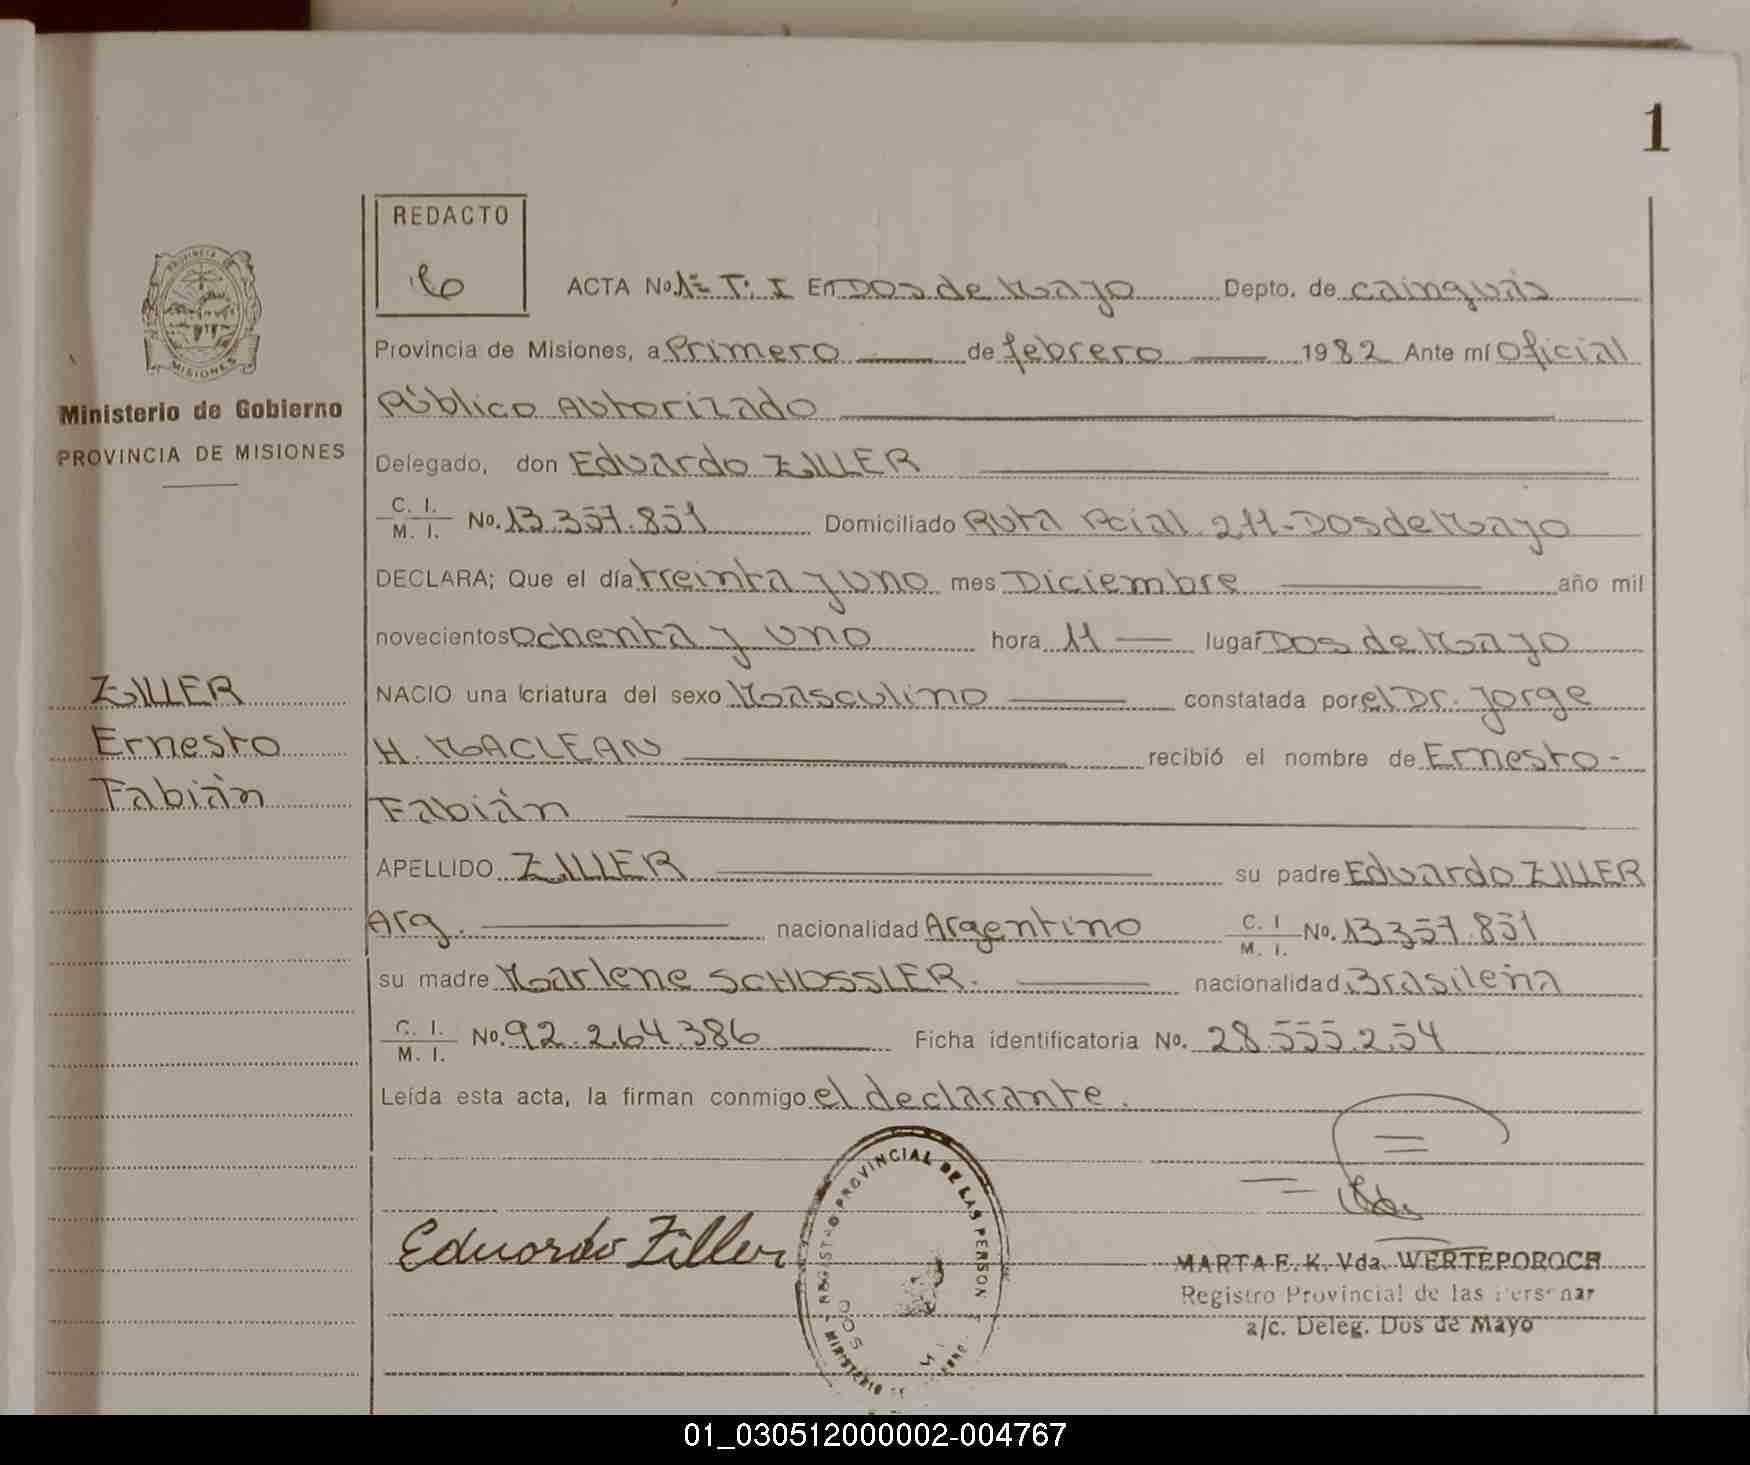 1
REDACTO
ACTA No. 1º T: I En Dos de Mayo Depto. de Cainguás
Provincia de Misiones, a Primero de febrero 1982 Ante mí Oficial
Público Autorizado
Delegado, don Eduardo ZILLER
C. I.
M. I. No. 13.357.851 Domiciliado Ruta Pcial. 211-Dos de Mayo
DECLARA; Que el día treinta y uno mes Diciembre año mil
novecientos ochenta y uno hora 11 lugar Dos de Mayo
NACIO una criatura del sexo Masculino constatada por el Dr. Jorge
H. MACLEAN recibió el nombre de Ernesto-
Fabián
APELLIDO ZILLER su padre Eduardo ZILLER
Arg. nacionalidad Argentino C. I
M. I. No. 13.357.851
su madre Marlene SCHOSSLER. nacionalidad Brasileña
C. I.
M. I. No. 92.264.386 Ficha identificatoria No. 28.555.254
Leída esta acta, la firman conmigo el declarante.
PROVINCIA DE
MISIONES
Ministerio de Gobierno
PROVINCIA DE MISIONES
ZILLER
Ernesto
Fabián
Eduardo Ziller
REGISTRO PROVINCIAL DE LAS PERSON
MINISTERIO DE
MARTA E. K. Vda. WERTEPOROCH
Registro Provincial de las
a/c. Deleg. Dos de Mayo
01_030512000002-004767